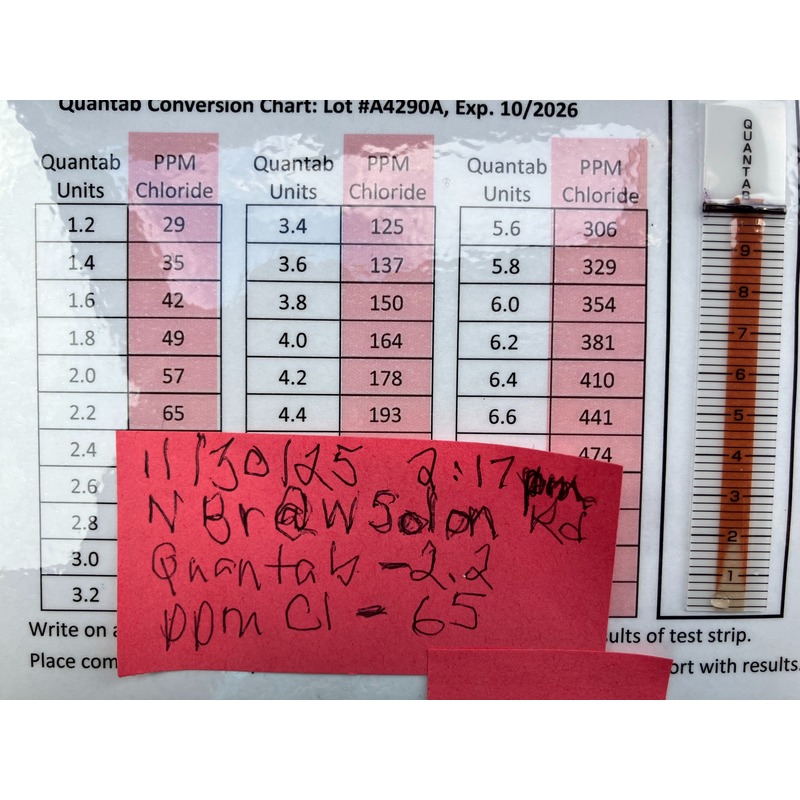 Quantab Conversion Chart: Lot #A4290A, Exp. 10/2026
Quantab Units PPM Chloride Quantab Units PPM Chloride Quantab Units PPM Chloride
1.2 29 3.4 125 5.6 306
1.4 35 3.6 137 5.8 329
1.6 42 3.8 150 6.0 354
1.8 49 4.0 164 6.2 381
2.0 57 4.2 178 6.4 410
2.2 65 4.4 193 6.6 441
2.4 474
2.6
2.8
3.0
3.2
11/30/25 2:17 pm
N Br @ W Solon Rd
Quantab - 2.2
ppm Cl - 65
Write on a
ults of test strip.
Place com
ort with results.
QUANTAB
9
8
7
6
5
4
3
2
1